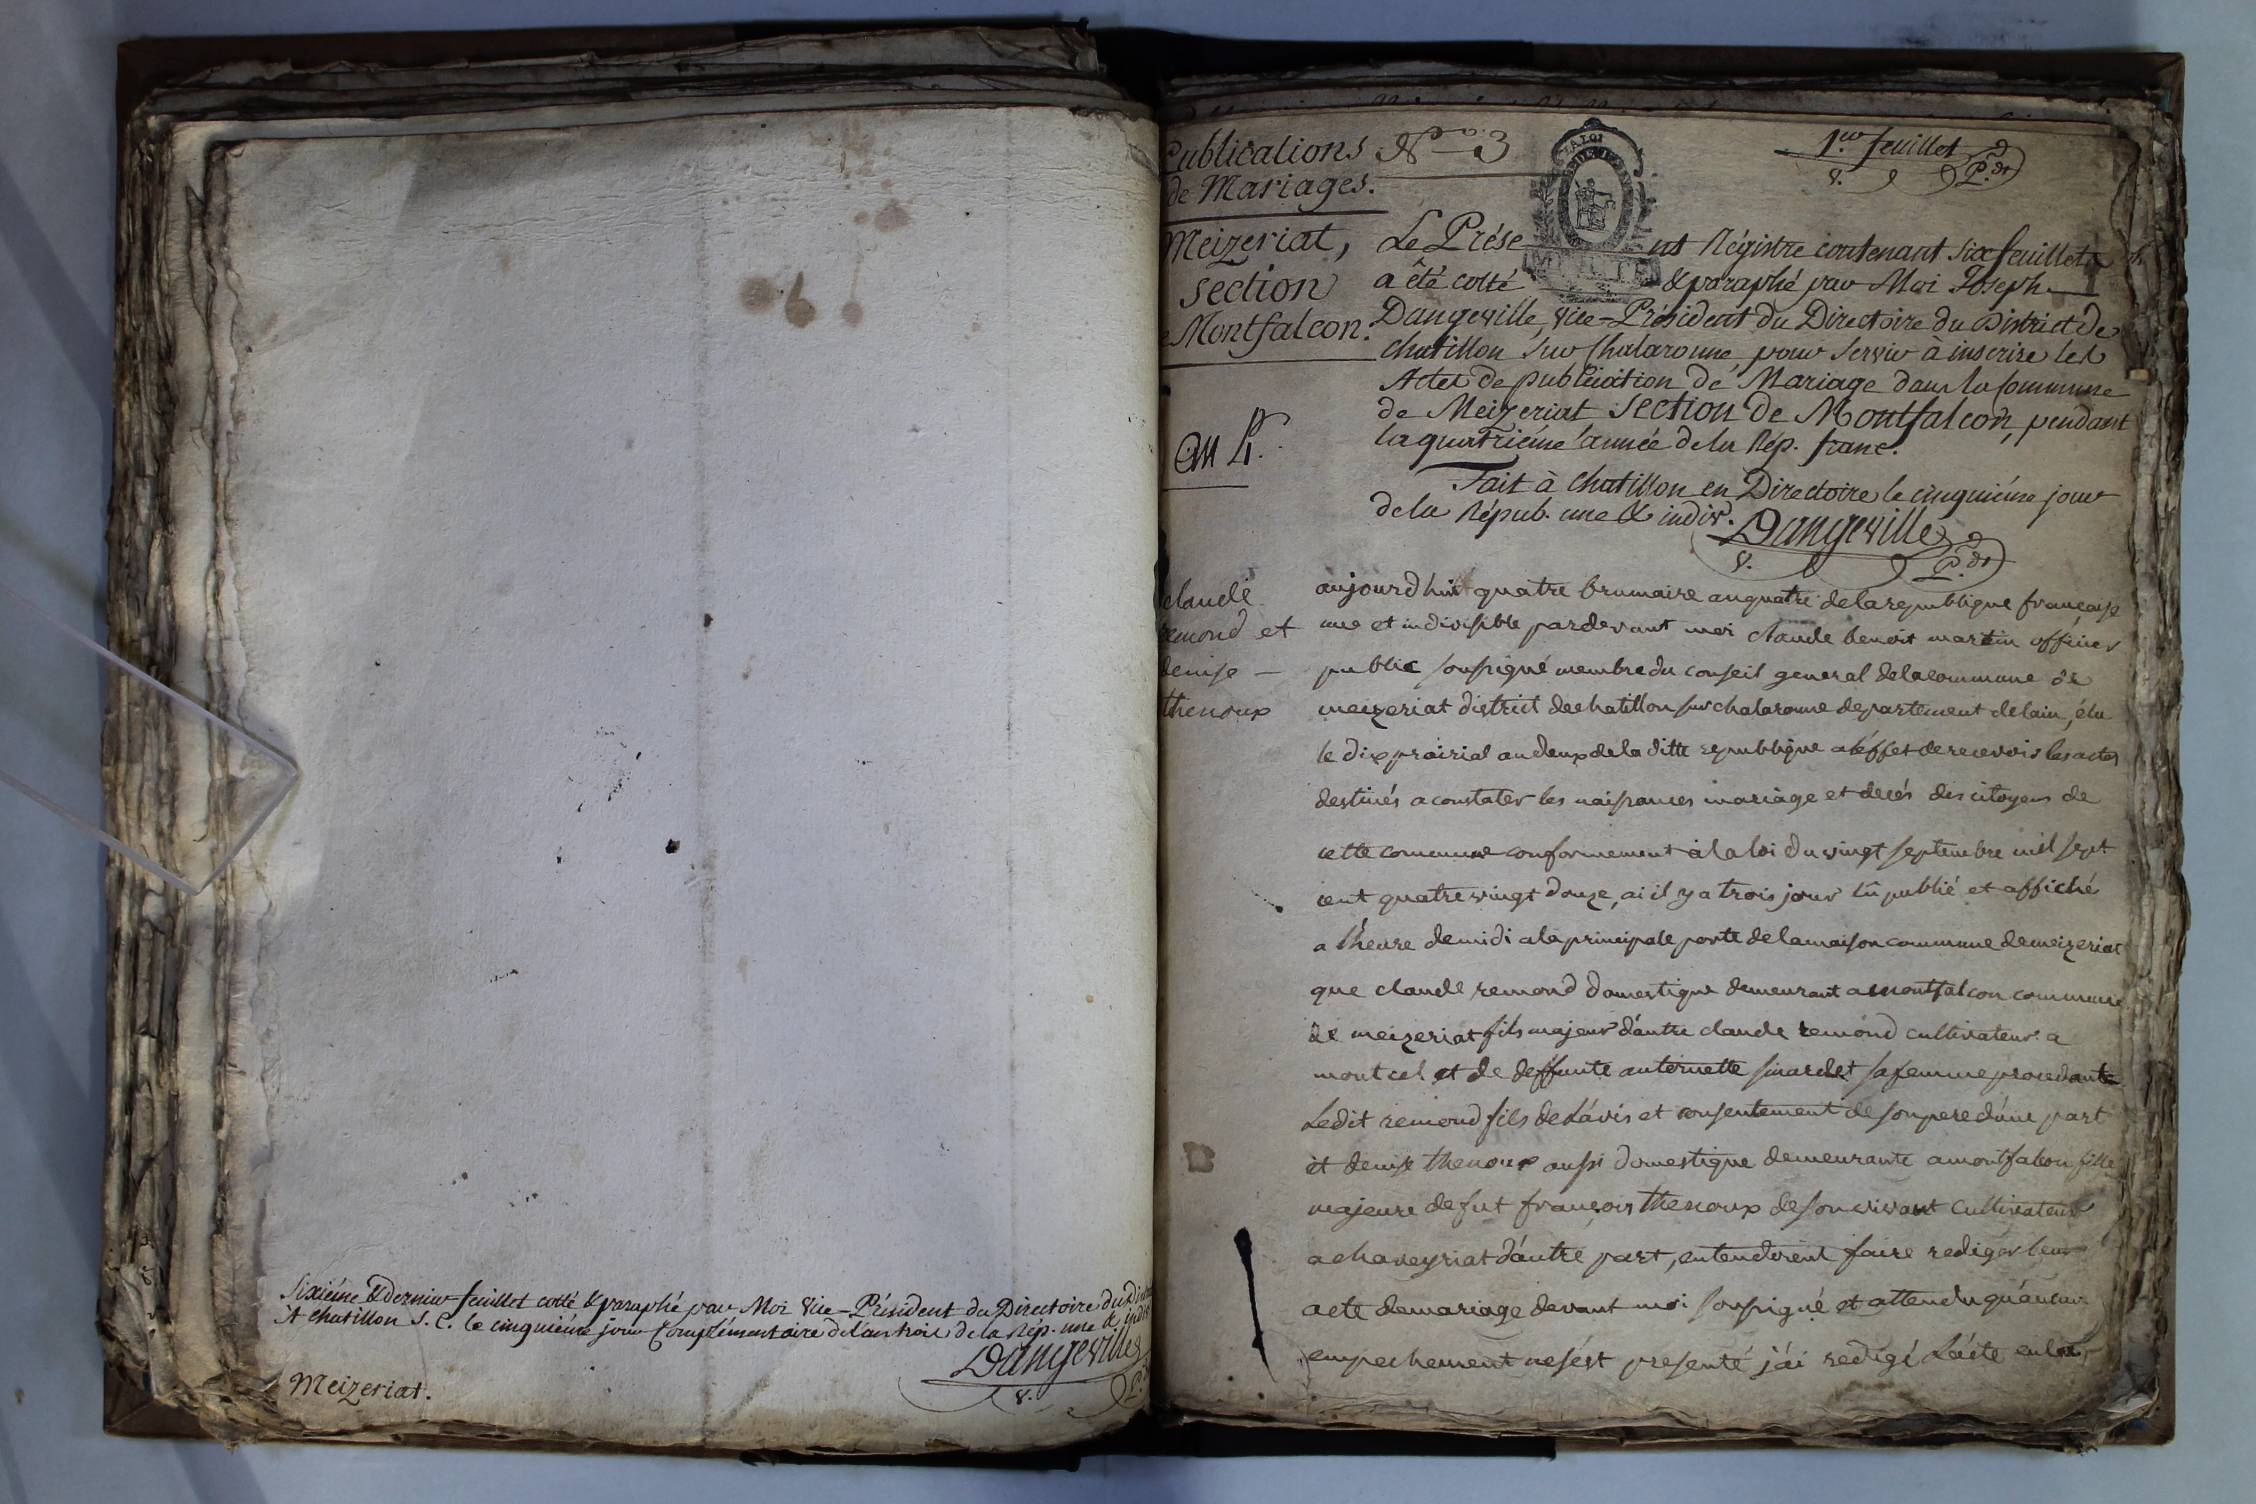 Sixiéme & dernier feuillet cotté & paraphé par Moi Vice-Président du Directoire du
A chatillon S. C. le cinquiéme jour Complémentaire de l'an trois de la Rép. une &
Dangeville
V.
Meizeriat.
Publications
de Mariages.
N.o 3
1.er feuillet
V. P.dt
Meizeriat,
section
Montfalcon.
an 4.
Le Présent Régistre contenant six feuillets
a été cotté & paraphé par Moi Joseph
Dangeville, Vice-Président du Directoire du District de
chatillon sur Chalaronne pour servir à inscrire les
Actes de publication de Mariage dans la Commune
de Meizeriat section de Montfalcon, pendant
la quatriéme année de la Rép. franç.
Fait à chatillon en Directoire le cinquiéme jour
de la Répub. une & indiv. Dangeville
V. P.dt
claude
remond et
denise —
thenoux
aujourdhui quatre brumaire an quatre de la republique française
une et indivisible pardevant moi claude benoit martin officier
public soussigné membre du conseil general de la commune de
meizeriat district de chatillon sur chalaronne departement de lain, élu
le dix prairial an deux de la ditte republique a léffet de recevoir les actes
destinés a constater les naissances mariage et decés des citoyens de
cette commune conformement à la loi du vingt septembre mil sept
cent quatre vingt douze, ai il y a trois jour lû publié et affiché
a lheure de midi a la principale porte de la maison commune de meizeriat
que claude remond domestique demeurant a montfalcon commune
de meizeriat fils majeur dautre claude remond cultivateur a
montcel et de deffunte antoinette sa femme procedante
Ledit remond fils de Lávis et consentement de son pere dúne part
et denise thenoux aussi domestique demeurante a montfalcon fille
majeure de fut françois thenoux de son vivant cultivateur
a chaveyriat dáutre part, entendirent faire rediger leur
acte de mariage devant moi soussigné et attendu quáucun
empechement ne sést presenté jái redigé Lácte en